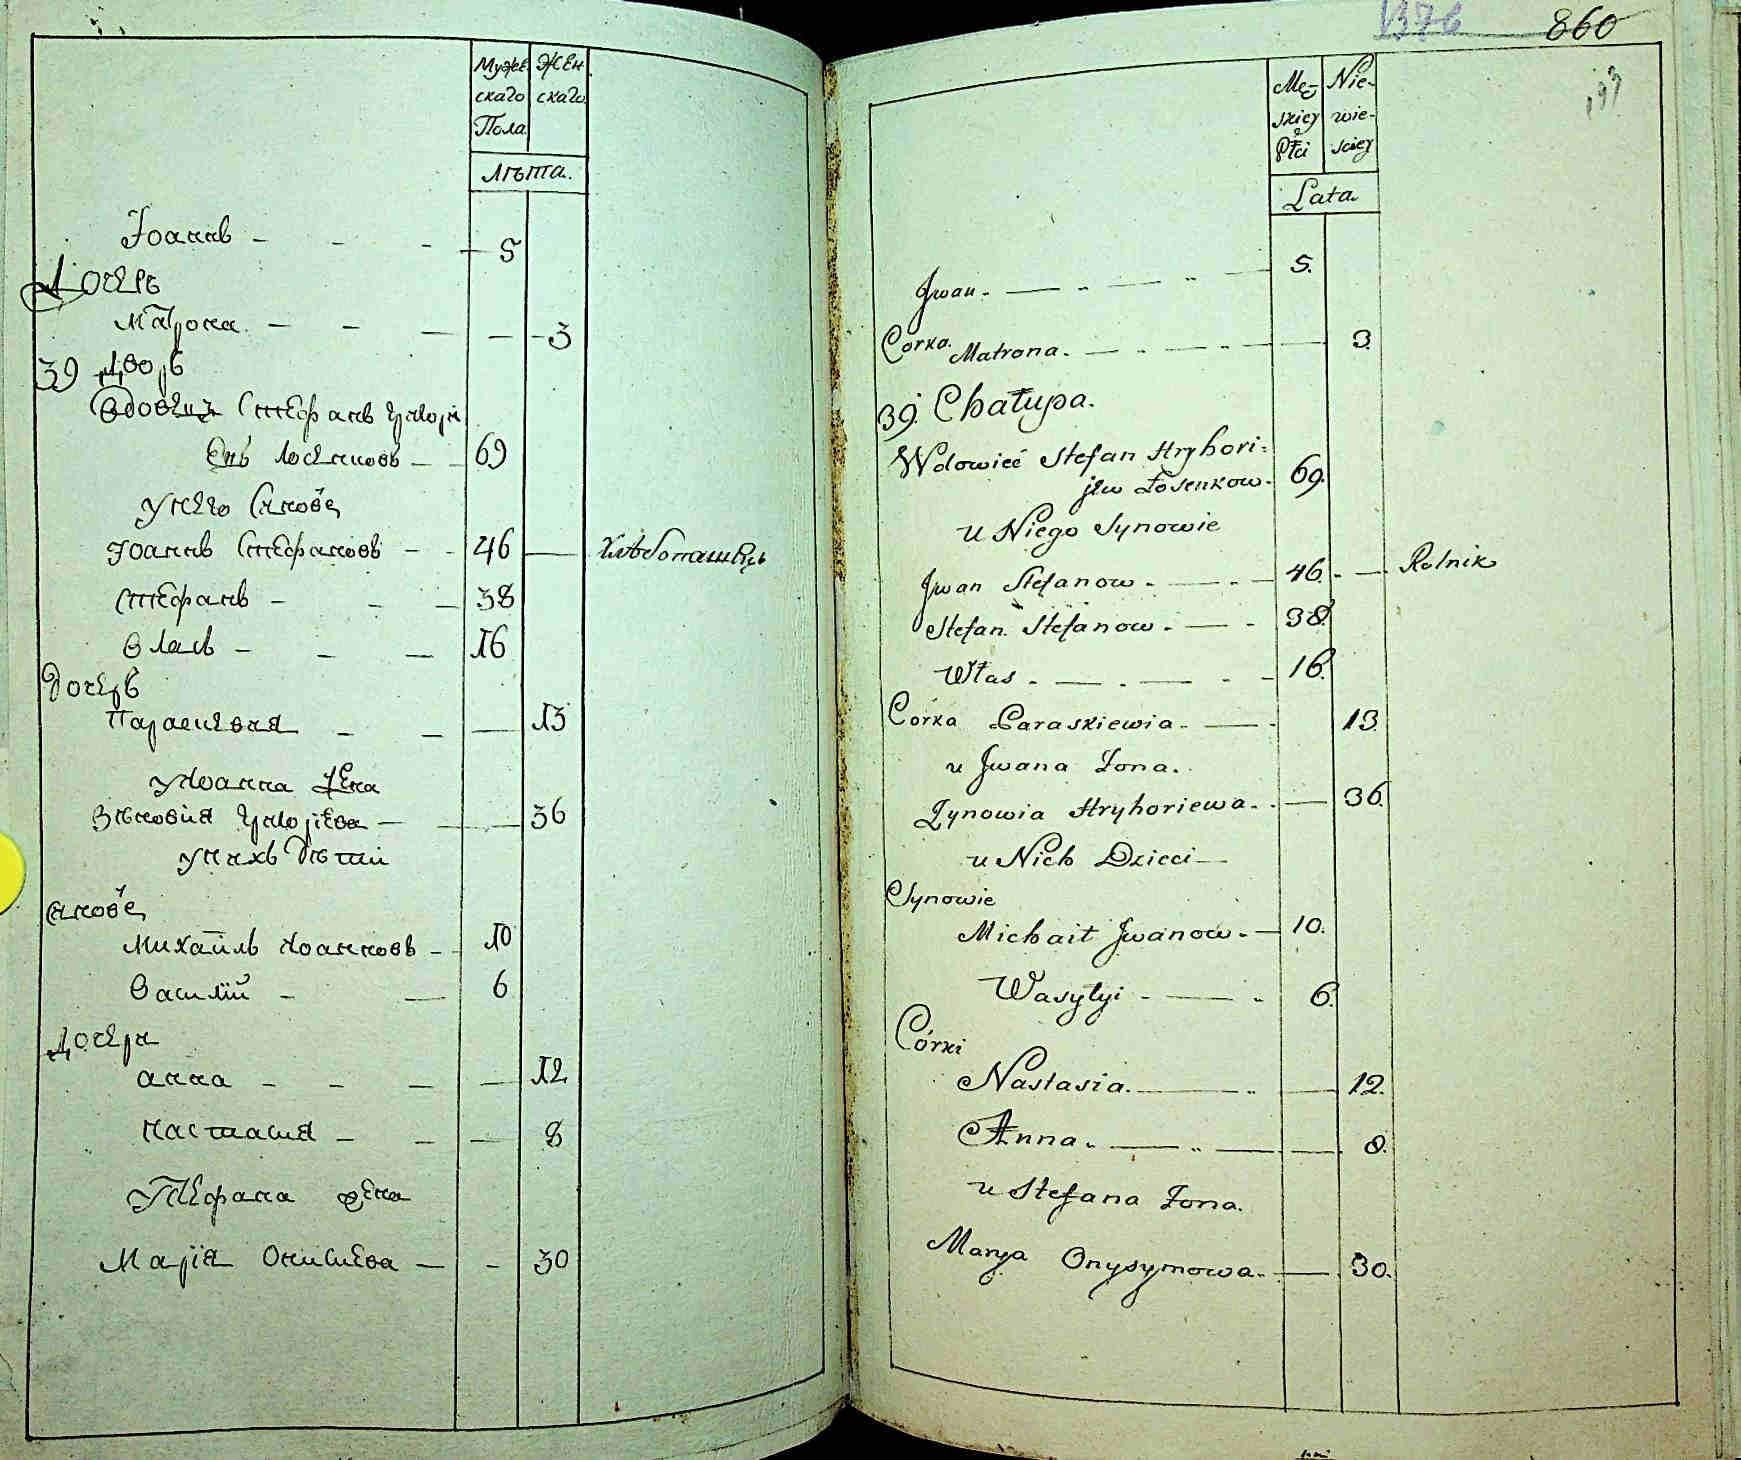 Муже
скаго
Пола
Жен
скаго
Лѣта.
Іоаннъ - - - 5
Дочерь
Матрона - - - 3
39 Дворъ
Вдовецъ Стефанъ Григорі
евъ Лосенковъ - 69
У него Сынове
Іоаннъ Стефановъ - 46 — Хлѣбопашецъ
Стефанъ - - - 38
Власъ - - - 16
Дочерь
Параскевия - - - 13
У Иоанна Жена
Зѣновия Григориева - - 36
У нихъ Дѣтии
Сынове
Михаилъ Иоанновъ - 10
Василий - - 6
Дочери
Анна - - - 12
Настасия - - - 8
У Стефана Жена
Мария Онисиева - - 30
1376
860
193
Mę-
skiey
Płci
Nie-
wie-
sciey
Lata.
Jwan. - - - 5.
Corka. Matrona. - - - 3.
39. Chałupa.
Wdowieć Stefan Hryhori=
jew Łosenkow. 69.
u Niego Synowie
Jwan Stefanow. - - 46. - — Rolnik
Stefan. Stefanow. - - 38.
Własˊ. - - - 16.
Córka Paraskiewia. - - 13.
u Jwana Żona.
Zynowia Hryhoriewa. - 36.
u Nich Dzieci —
Synowie
Michaił Jwanow. - 10.
Wasyłyi - - - 6.
Córki
Nastasia. - - - 12.
Anna. - - - 8.
u Stefana Żona.
Marya Onysymowa. - 30.